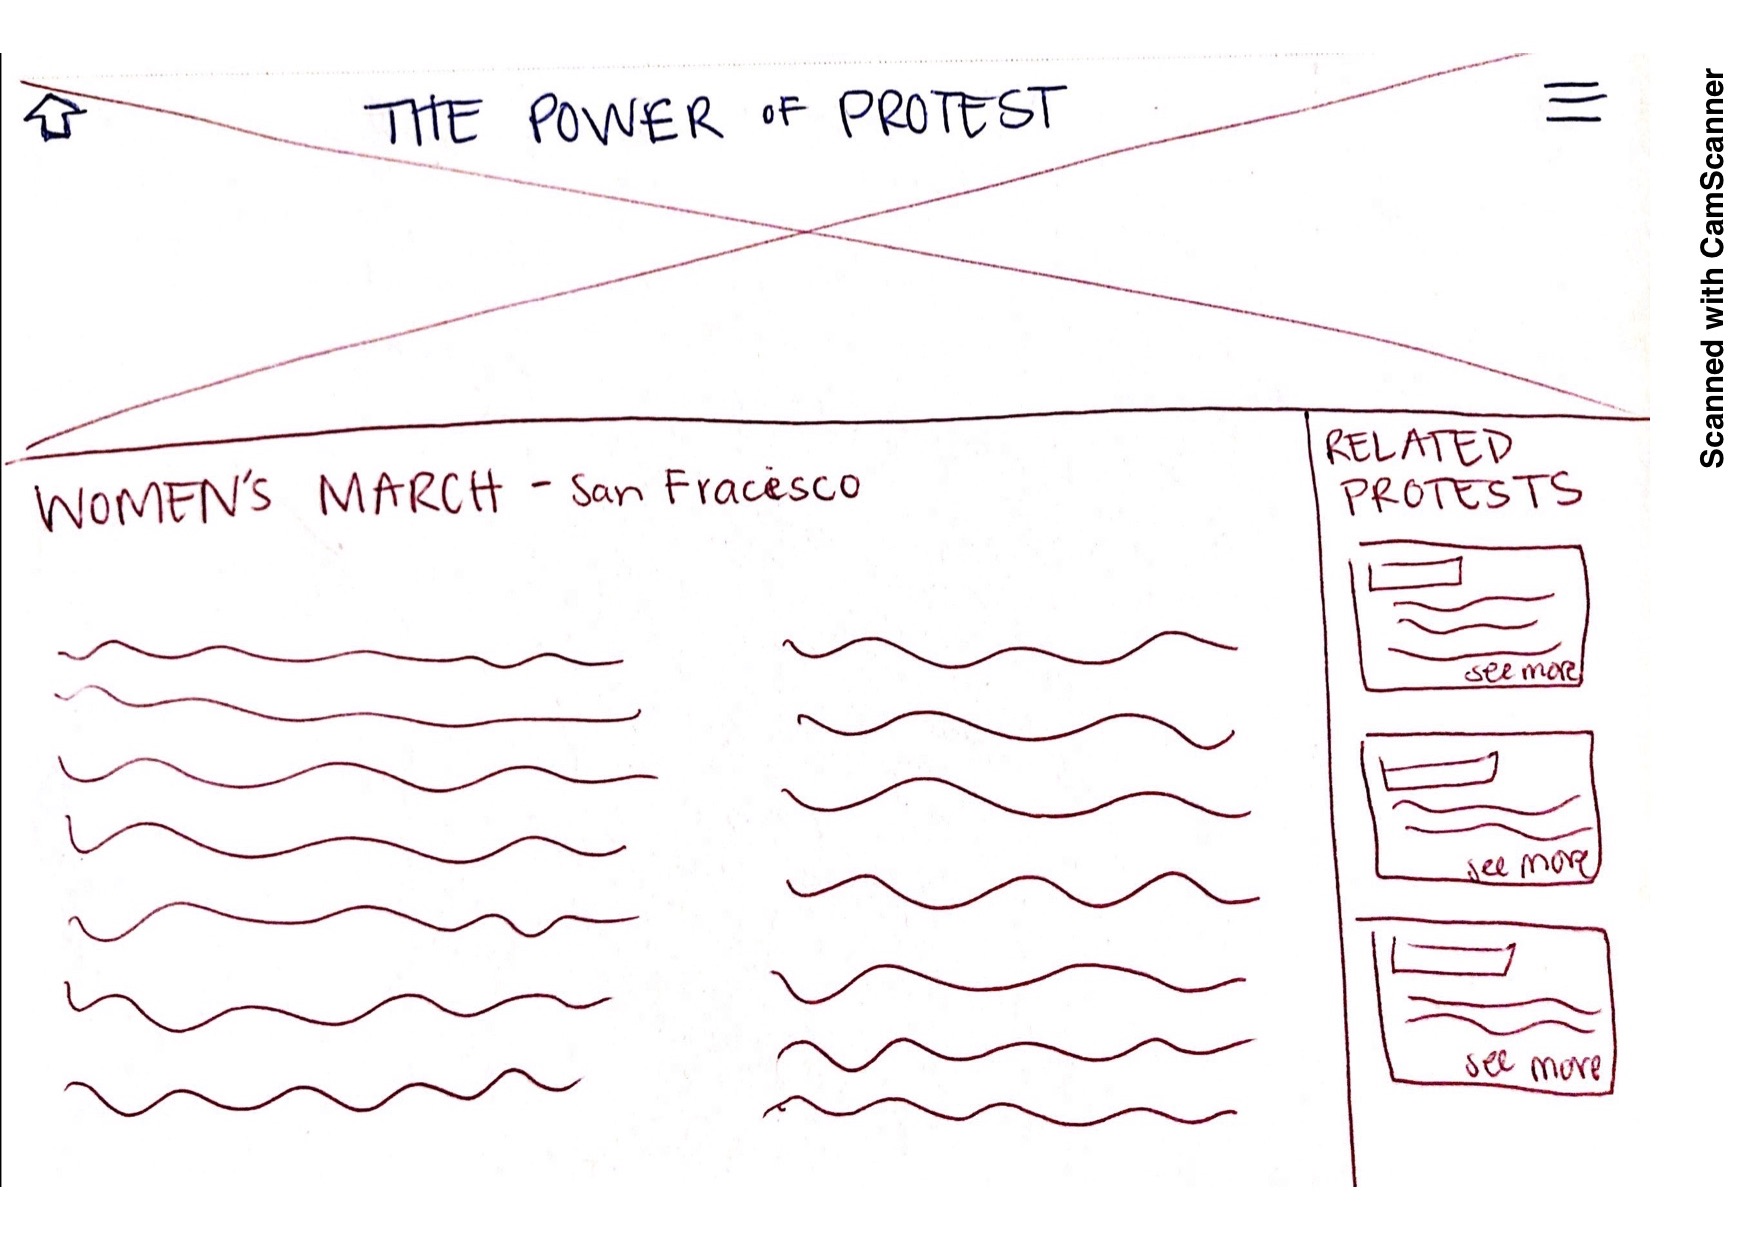 THE POWER OF PROTEST
WOMEN'S MARCH - San Fracesco
RELATED
PROTESTS
see more
see more
see more
Scanned with CamScanner